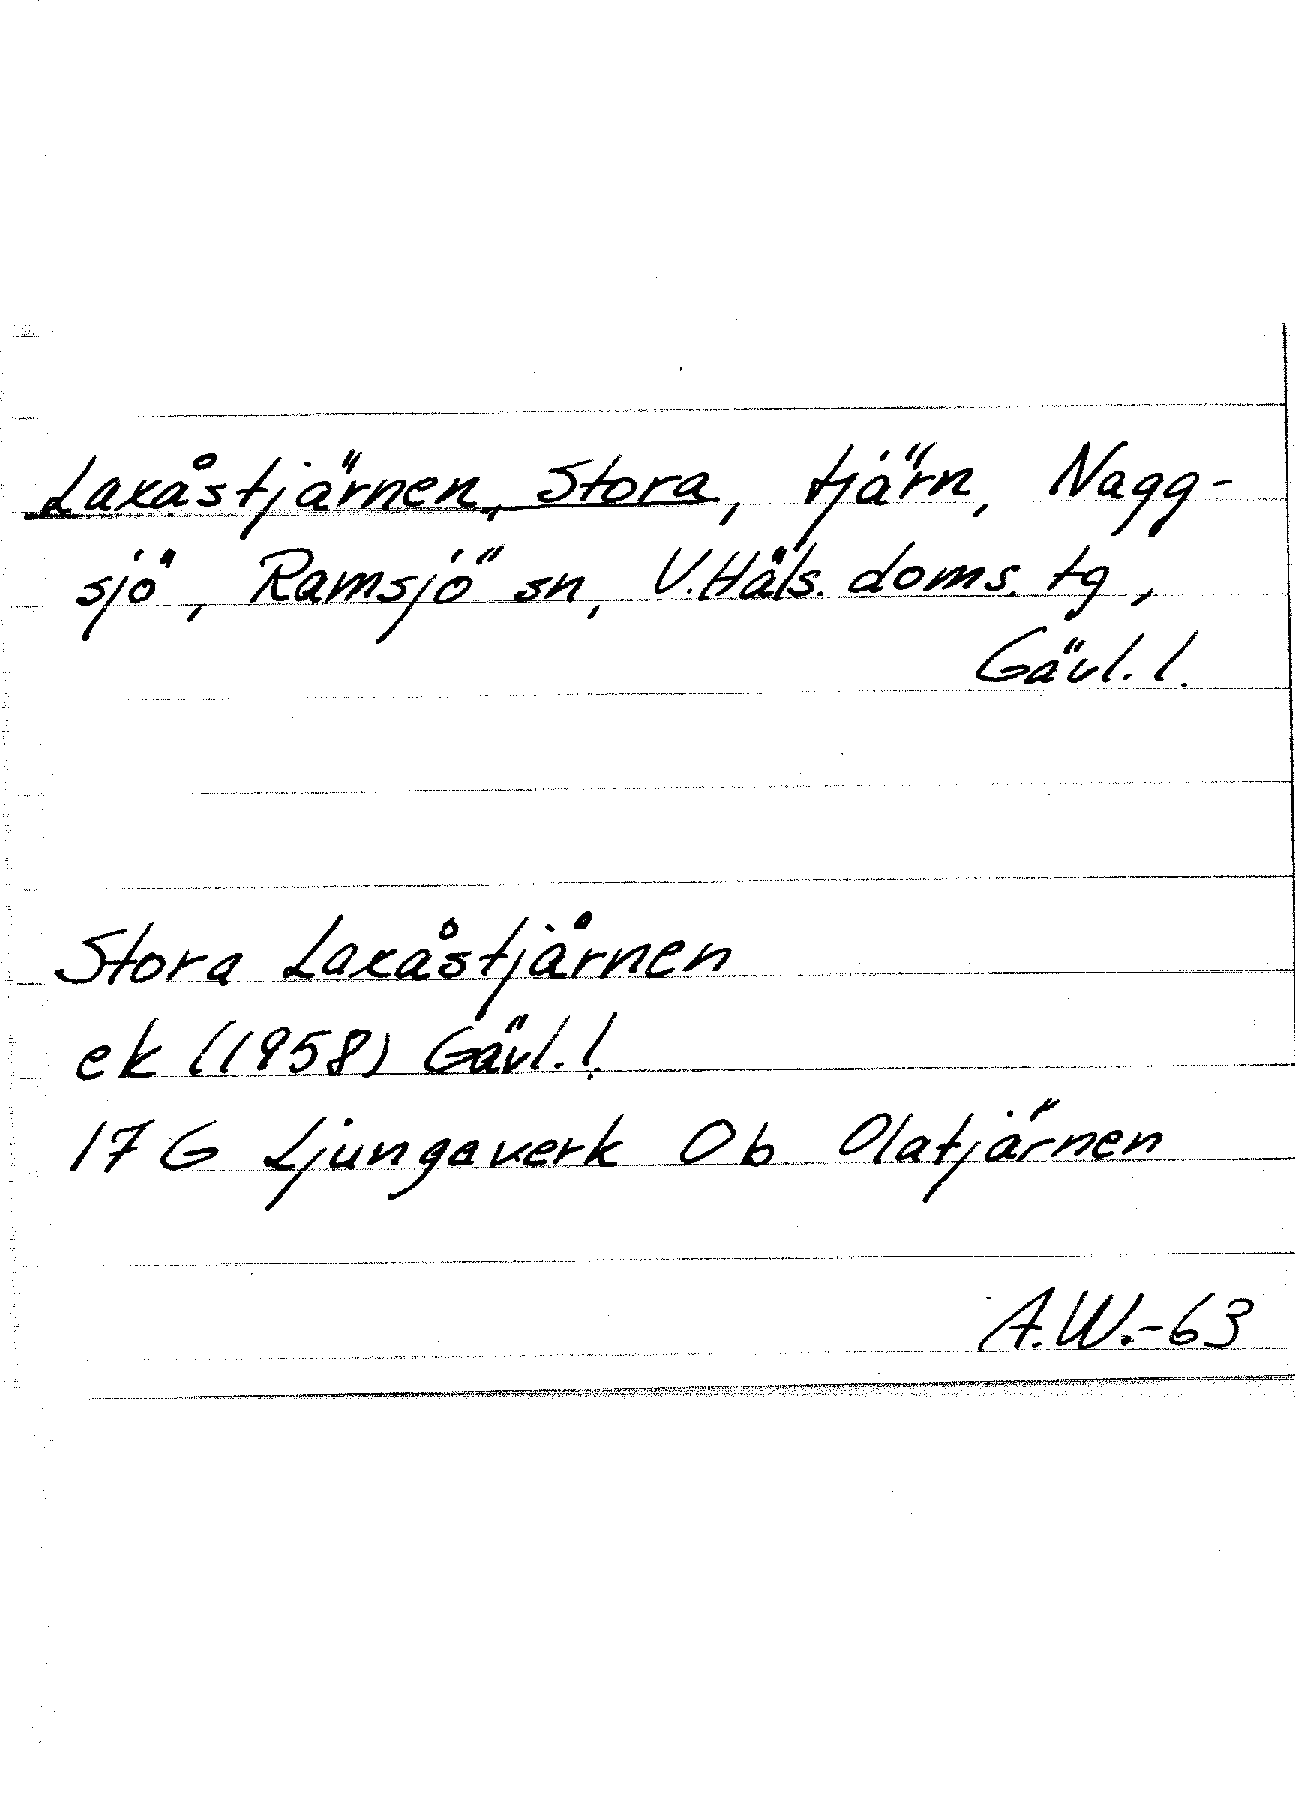 Laxåstjärnen, Stora, tjärn, Nagg-
sjö, Ramsjö sn, V.Häls. doms. tg,
Gävl. l.
Stora Laxåstjårnen
ek (1958) Gävl. l.
17 G Ljungaverk Ob Olatjärnen
A.W.-63